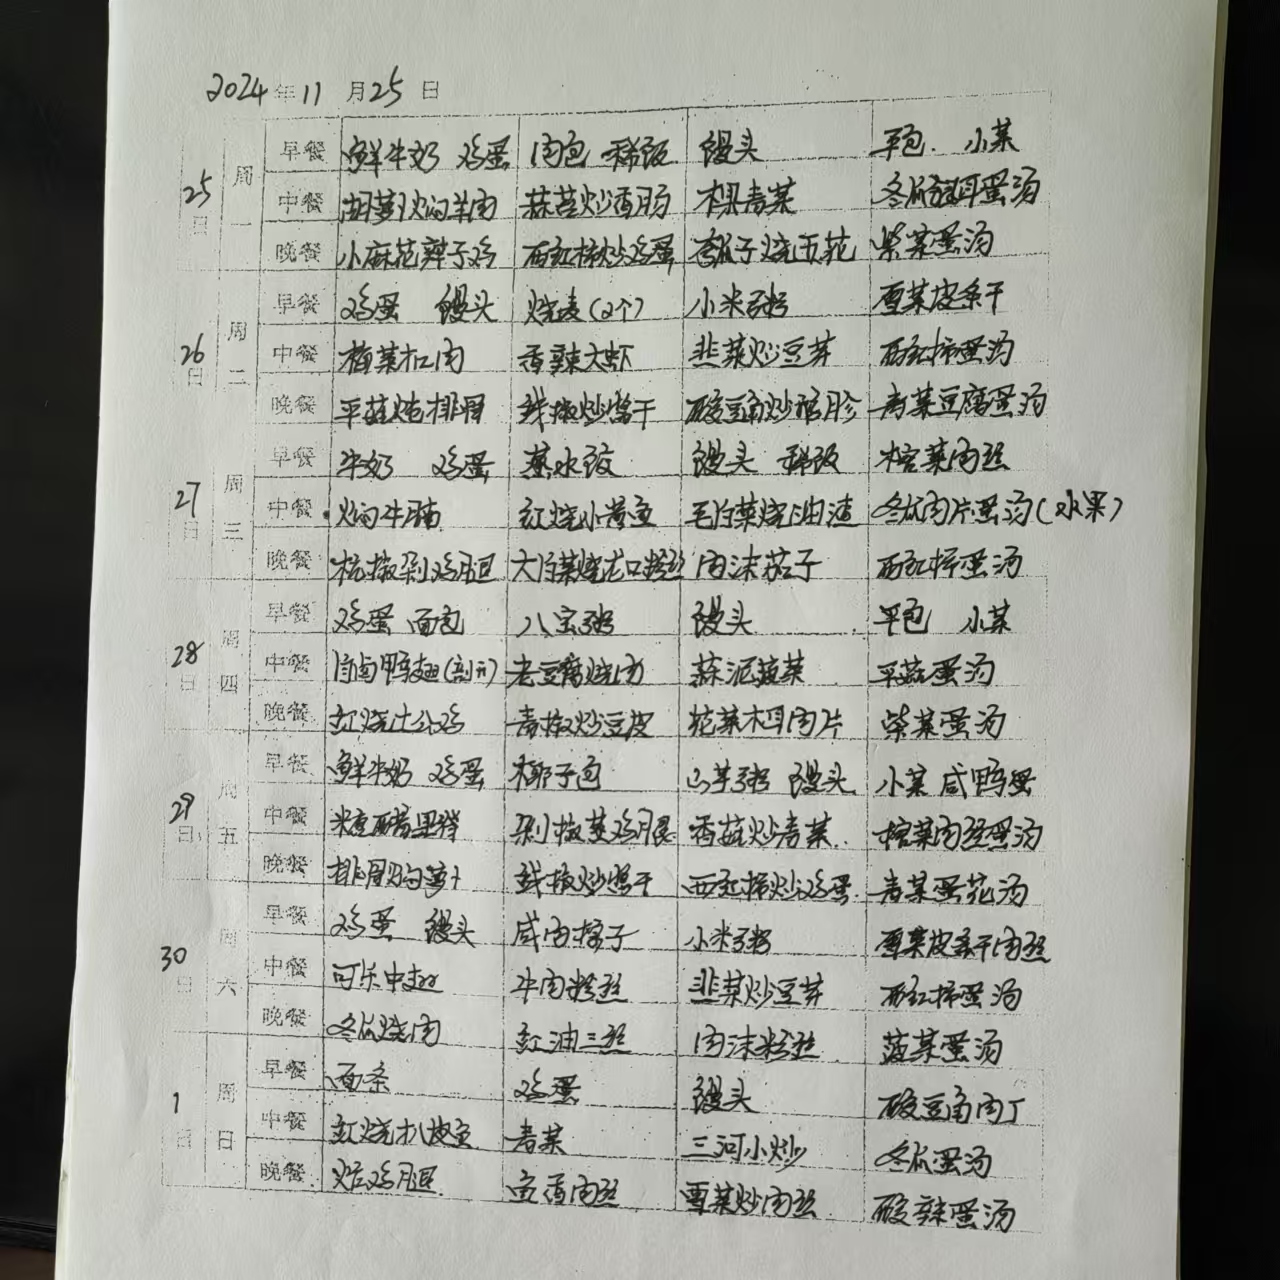 2024年11月25日
25日 周一 早餐 鲜牛奶 鸡蛋 肉包 稀饭 馒头 平包 小菜
中餐 胡萝卜焖羊肉 蒜苔炒香肠 青菜 冬瓜蛋汤
晚餐 小麻花辣子鸡 西红柿炒鸡蛋 瓠子烧五花 紫菜蛋汤
26日 周二 早餐 鸡蛋 馒头 烧麦(2个) 小米粥 雪菜皮条干
中餐 梅菜扣肉 香辣大虾 韭菜炒豆芽 西红柿蛋汤
晚餐 平菇炖排骨 线椒炒酱干 酸豆角炒 青菜豆腐蛋汤
27日 周三 早餐 牛奶 鸡蛋 蒸水饺 馒头 稀饭 榨菜肉丝
中餐 焖牛腩 红烧小黄鱼 毛白菜烧油渣 冬瓜肉片蛋汤(水果)
晚餐 杭椒剁鸡腿 大白菜烧龙口粉丝 肉沫茄子 西红柿蛋汤
28日 周四 早餐 鸡蛋 面包 八宝粥 馒头 平包 小菜
中餐 鸭翅 老豆腐烧肉 蒜泥菠菜 平菇蛋汤
晚餐 红烧土公鸡 青椒炒豆皮 花菜木耳肉片 紫菜蛋汤
29日 周五 早餐 鲜牛奶 鸡蛋 椰子包 山芋粥 馒头 小菜 咸鸭蛋
中餐 糖醋里脊 剁椒蒸鸡腿 香菇炒青菜 榨菜肉丝蛋汤
晚餐 排骨萝卜 线椒炒酱干 西红柿炒鸡蛋 青菜蛋花汤
30日 周六 早餐 鸡蛋 馒头 咸肉粽子 小米粥 雪菜皮条干肉丝
中餐 可乐中翅 牛肉粉丝 韭菜炒豆芽 西红柿蛋汤
晚餐 冬瓜烧肉 红油三丝 肉沫粉丝 菠菜蛋汤
1日 周日 早餐 面条 鸡蛋 馒头 酸豆角肉丁
中餐 红烧扒皮鱼 青菜 三河小炒 冬瓜蛋汤
晚餐 炸鸡腿 鱼香肉丝 雪菜炒肉丝 酸辣蛋汤